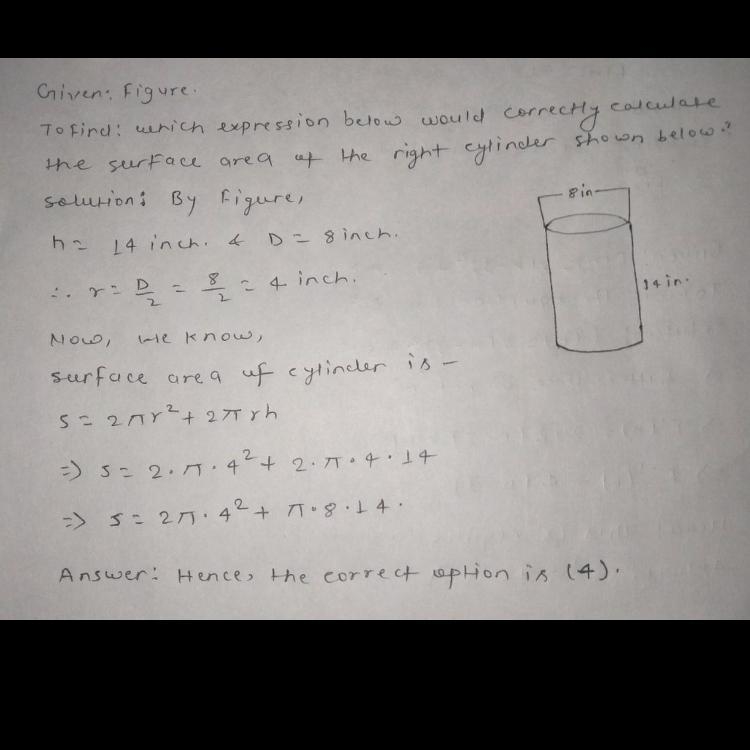 Given: Figure.
To find: which expression below would correctly calculate
the surface area of the right cylinder shown below?
solution: By Figure,
8in
h = 14 inch. & D = 8 inch.
14 in.
∴ r = D/2 = 8/2 = 4 inch.
Now, we know,
surface area of cylinder is –
S = 2πr² + 2πrh
=> S = 2.π.4² + 2.π.4.14
=> S = 2π.4² + π.8.14.
Answer: Hence, the correct option is (4).